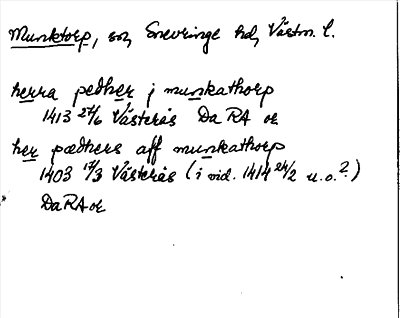 Munktorp, sn, Snevringe hd, Västm. l.
herra pedher j munkathorp
1413 27/6 Västerås Da RA or
her pædhers aff munkathorp
1403 17/3 Västerås (i vid. 1414 24/2 u.o.?)
Da RA or